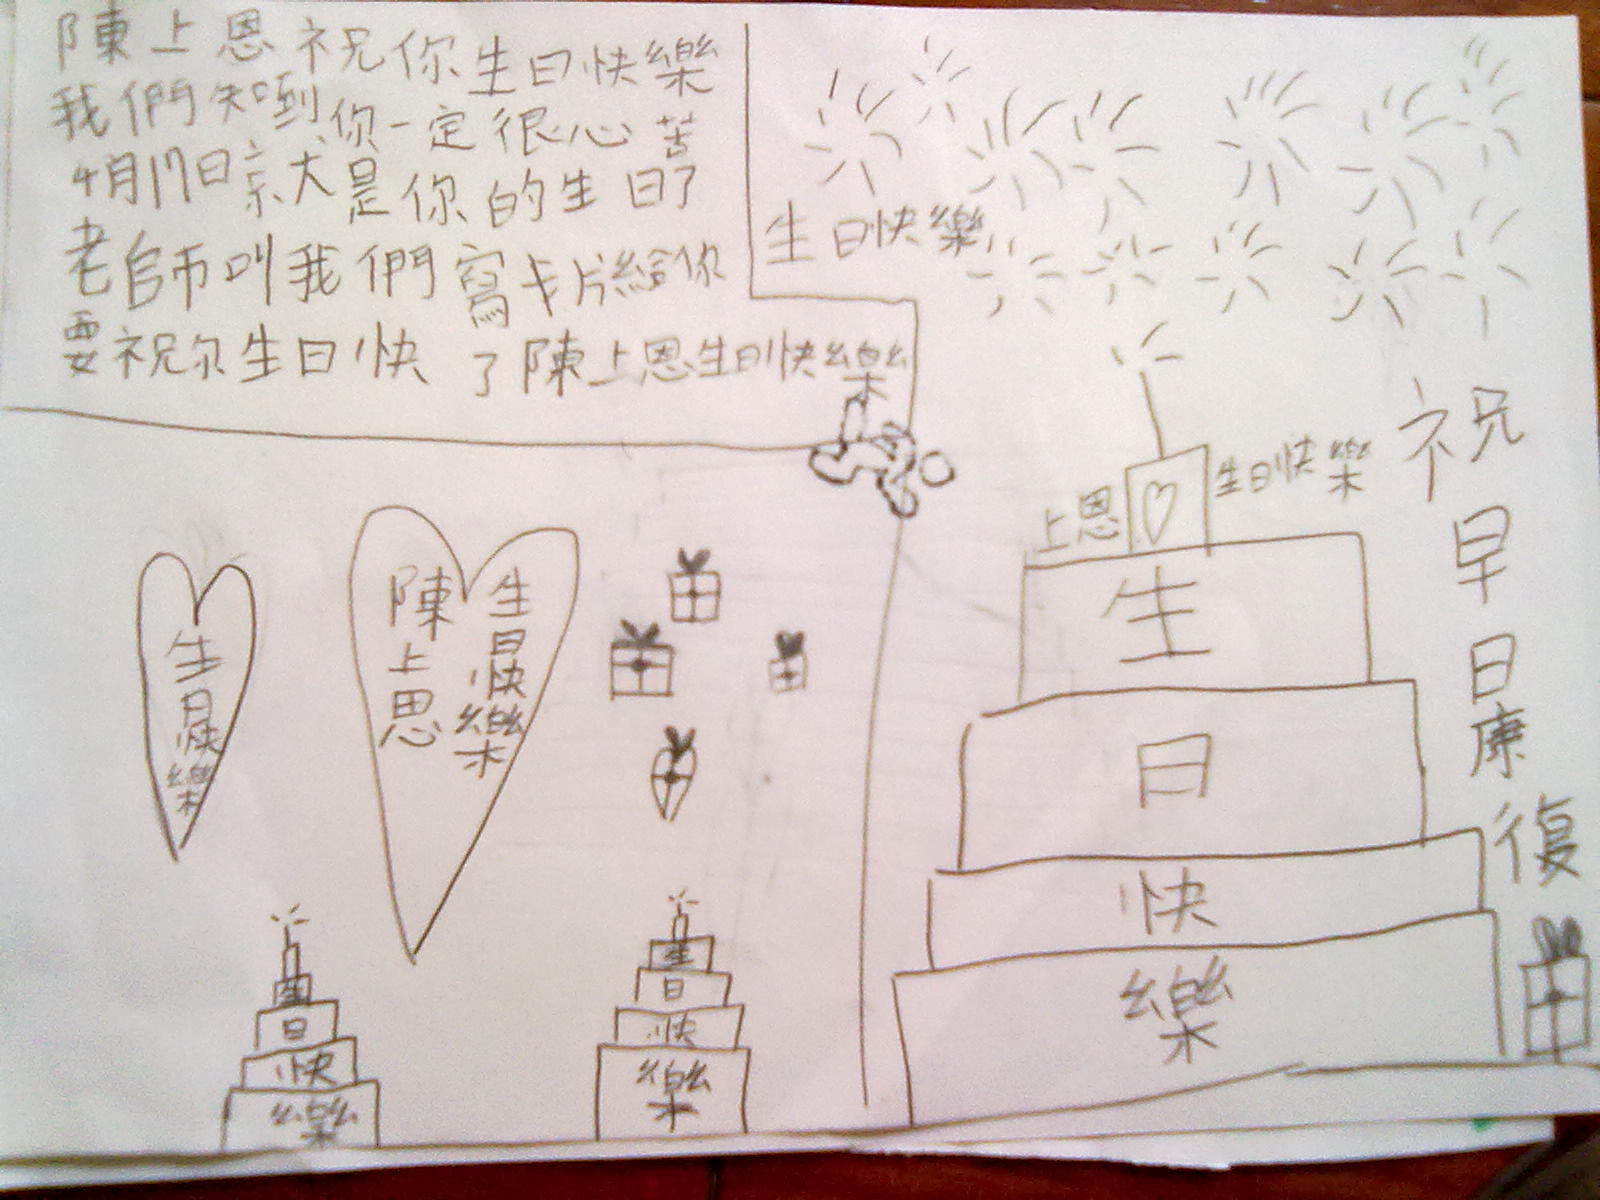 陳上恩祝你生日快樂
我們知道你一定很心苦
4月17日就是你的生日了
老師叫我們寫卡片給你
要祝你生日快了陳上恩生日快樂
生日快樂
上恩
生日快樂
祝早日康復
生
日
快
樂
生日快樂
陳上恩
生日快樂
生
日
快
樂
生
日
快
樂